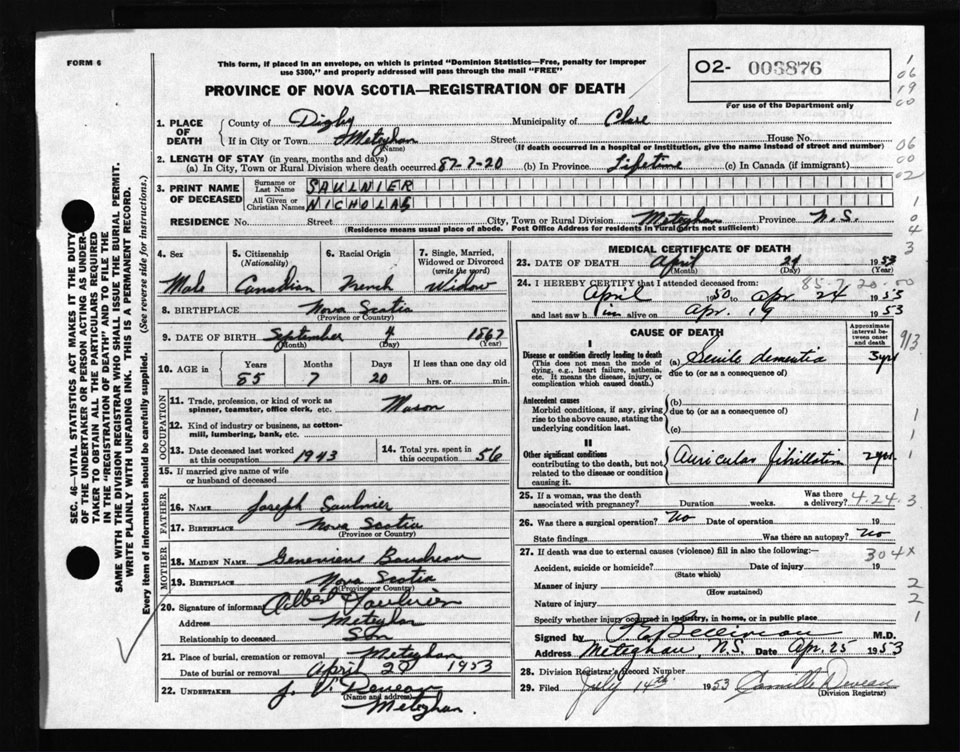 FORM 6
This form, if placed in an envelope, on which is printed "Dominion Statistics—Free, penalty for improper
use $300," and properly addressed will pass through the mail "FREE"
O2- 003876
PROVINCE OF NOVA SCOTIA—REGISTRATION OF DEATH
For use of the Department only
1. PLACE OF DEATH
County of Digby Municipality of Clare
If in City or Town Meteghan Street House No.
(Name) (If death occurred in a hospital or institution, give the name instead of street and number)
2. LENGTH OF STAY (in years, months and days)
(a) In City, Town or Rural Division where death occurred 87-7-20 (b) In Province Lifetime (c) In Canada (if immigrant)
3. PRINT NAME OF DECEASED
Surname or Last Name SAULNIER
All Given or Christian Names NICHOLAS
RESIDENCE No. Street City, Town or Rural Division Meteghan Province N.S.
(Residence means usual place of abode. Post Office Address for residents in rural parts not sufficient)
4. Sex
Male
5. Citizenship
(Nationality)
Canadian
6. Racial Origin
French
7. Single, Married,
Widowed or Divorced
(write the word)
Widow
8. BIRTHPLACE Nova Scotia
(Province or Country)
9. DATE OF BIRTH September 4 1867
(Month) (Day) (Year)
10. AGE in
Years Months Days If less than one day old
85 7 20 hrs. or min.
OCCUPATION
11. Trade, profession or kind of work as
spinner, teamster, office clerk, etc. Mason
12. Kind of industry or business, as cotton-
mill, lumbering, bank, etc.
13. Date deceased last worked
at this occupation 1943
14. Total yrs. spent in
this occupation 56
15. If married give name of wife
or husband of deceased
FATHER
16. NAME Joseph Saulnier
17. BIRTHPLACE Nova Scotia
(Province or Country)
MOTHER
18. MAIDEN NAME Genevieve Boudreau
19. BIRTHPLACE Nova Scotia
(Province or Country)
20. Signature of informant Albert Saulnier
Address Meteghan
Relationship to deceased Son
21. Place of burial, cremation or removal Meteghan
Date of burial or removal April 1953
22. UNDERTAKER J. V. Deveau
(Name and address)
Meteghan.
MEDICAL CERTIFICATE OF DEATH
23. DATE OF DEATH April 24 1953
(Month) (Day) (Year)
85-7-20-50
24. I HEREBY CERTIFY that I attended deceased from:
April 1950 to Apr. 24 1953
and last saw him alive on Apr. 19 1953
CAUSE OF DEATH
Approximate
interval be-
tween onset
and death
I
Disease or condition directly leading to death
(This does not mean the mode of
dying, e.g., heart failure, asthenia,
etc. It means the disease, injury, or
complication which caused death.)
(a) Senile dementia 3 yrs
due to (or as a consequence of)
Antecedent causes
Morbid conditions, if any, giving
rise to the above cause, stating the
underlying condition last.
(b)
due to (or as a consequence of)
(c)
II
Other significant conditions
contributing to the death, but not
related to the disease or condition
causing it.
Auricular fibrillation 2 yrs.
25. If a woman, was the death
associated with pregnancy? Duration weeks. Was there a delivery?
4.24.3
26. Was there a surgical operation? No Date of operation 19
State findings Was there an autopsy? No
27. If death was due to external causes (violence) fill in also the following:—
304x
Accident, suicide or homicide? Date of injury 19
(State which)
Manner of injury
(How sustained)
Nature of injury
Specify whether injury occurred in industry, in home, or in public place
Signed by M.D.
Address Meteghan, N.S. Date Apr. 25 1953
28. Division Registrar's Record Number
29. Filed July 14th 1953 Camille Deveau
(Division Registrar)
SEC. 46—VITAL STATISTICS ACT MAKES IT THE DUTY
OF THE UNDERTAKER OR PERSON ACTING AS UNDER-
TAKER TO OBTAIN ALL THE PARTICULARS REQUIRED
IN THE "REGISTRATION OF DEATH" AND TO FILE THE
SAME WITH THE DIVISION REGISTRAR WHO SHALL ISSUE THE BURIAL PERMIT.
WRITE PLAINLY WITH UNFADING INK. THIS IS A PERMANENT RECORD.
Every item of information should be carefully supplied. (See reverse side for instructions.)
1
06
19
00
06
00
02
1
0
4
3
9/3
1
1
1
2
2
1